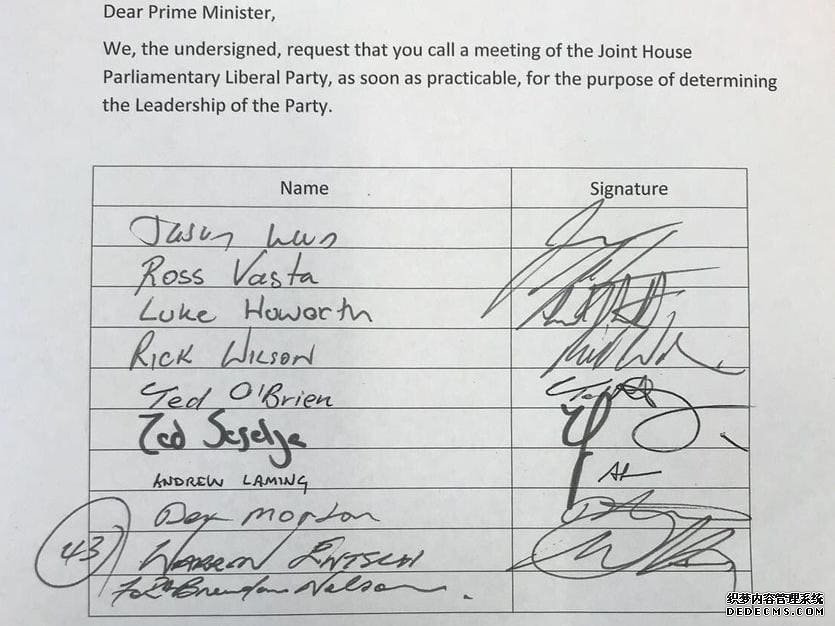 Dear Prime Minister,
We, the undersigned, request that you call a meeting of the Joint House
Parliamentary Liberal Party, as soon as practicable, for the purpose of determining
the Leadership of the Party.
Name Signature
Jason
Ross Vasta
Luke Howarth
Rick Wilson
Ted O'Brien
Zed Seselja
ANDREW LAMING
Ben Morton
43 WARREN ENTSCH
For Brendan Nelson.
织梦内容管理系统
DEDECMS.COM